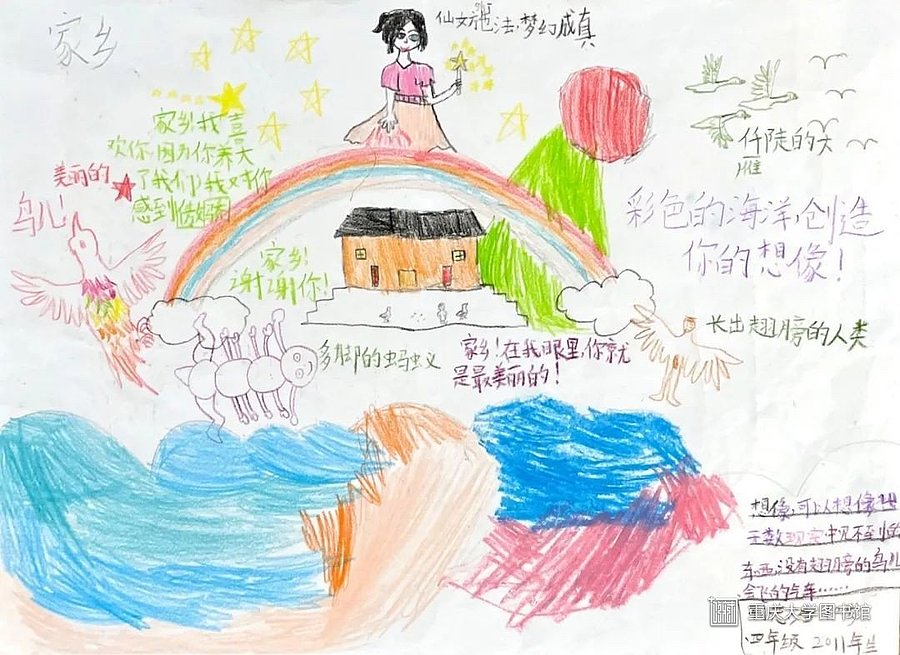 家乡
仙女施法,梦幻成真
家乡!我喜
欢你,因为你养大
了我们!我对你
美丽的
鸟儿!
家乡!
谢谢你!
的大
雁
彩色的海洋,创造
你的想像!
长出翅膀的人类
多脚的蚂蚁
家乡!在我眼里,你就
是最美丽的!
想像,可以想像出
无数现实中见不到的
东西,没有翅膀的鸟儿
会飞的汽车……
重庆大学图书馆
四年级 2011年生